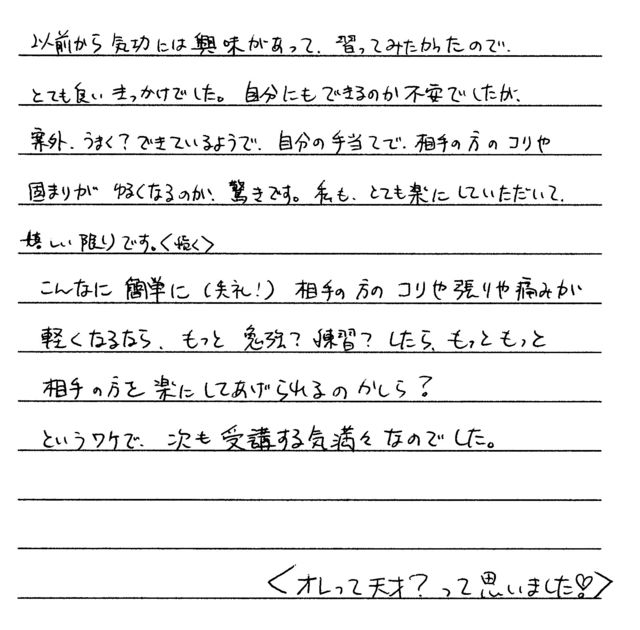 以前から気功には興味があって、習ってみたかったので、
とても良いきっかけでした。自分にもできるのか不安でしたが、
案外、うまく？できているようで、自分の手当てで、相手の方のコリや
固まりが ゆるくなるのが、驚きです。私も、とても楽にしていただいて、
嬉しい限りです。
こんなに簡単に（失礼！）相手の方のコリや張りや痛みが
軽くなるなら、もっと 勉強？練習？したら、もっともっと
相手の方を楽にしてあげられるのかしら？
というワケで、次も受講する気満々なのでした。
＜オレって天才？って思いました♡＞